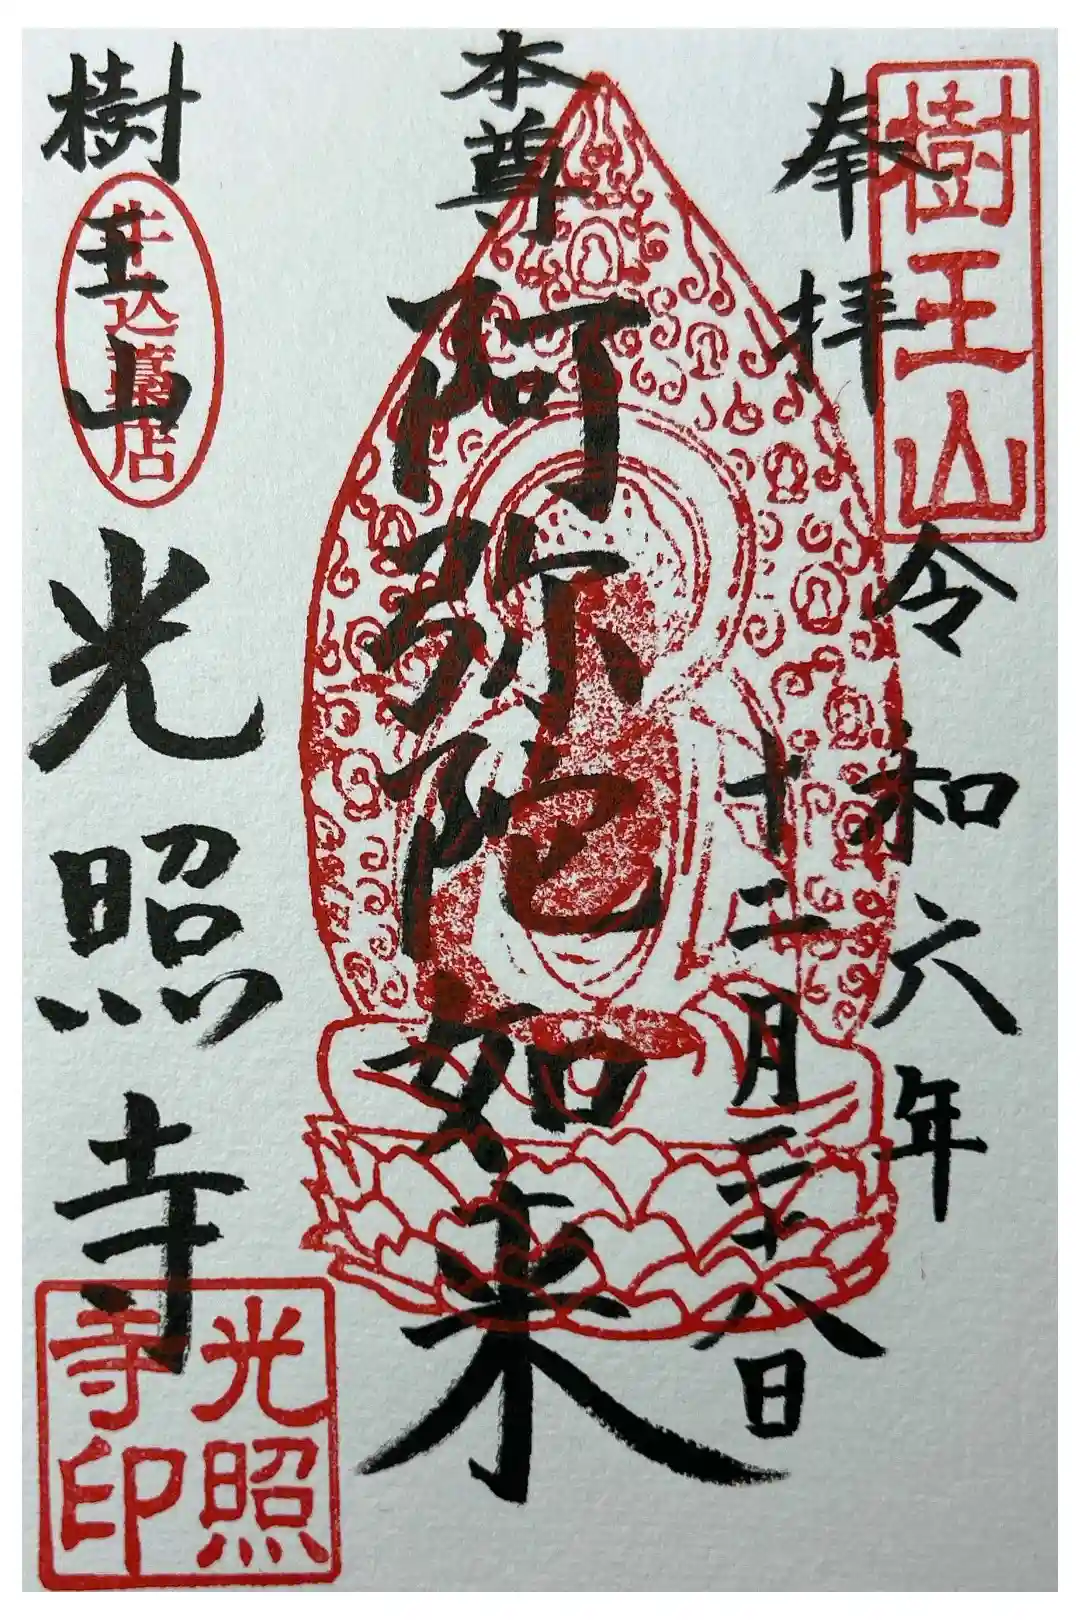 樹王山
奉拝
令和六年
十二月二十八日
本尊
阿弥陀如来
樹王山
牛込藁店
光照寺
光照
寺印